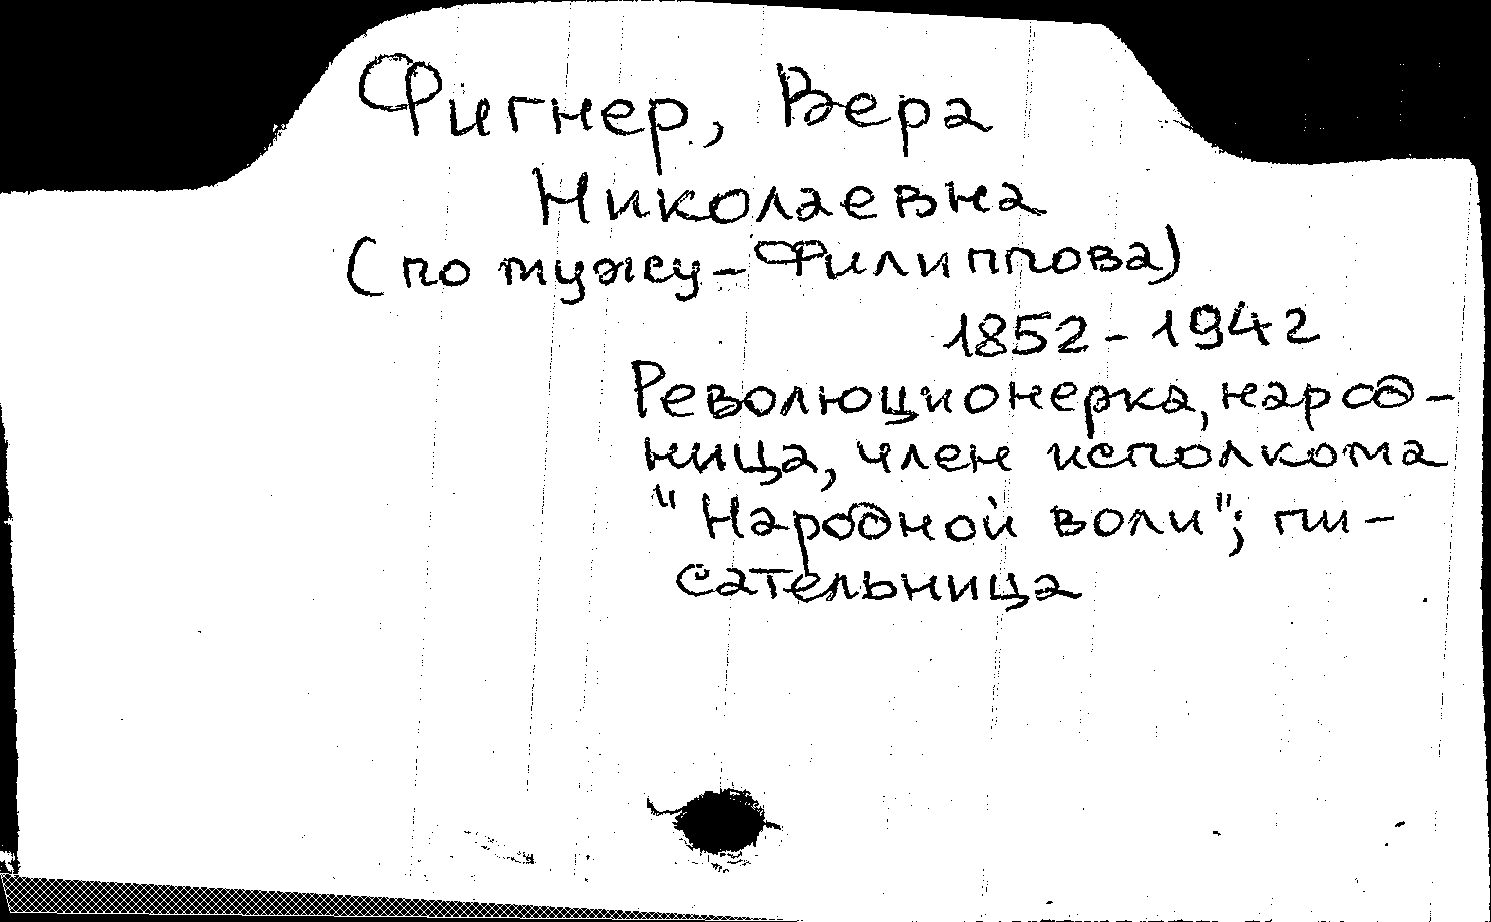 Фигнер, Вера
Николаевна
(по мужу - Филиппова)
1852 - 1942
Революционерка, народ-
ница, член исполкома
"Народной воли"; пи-
сательница